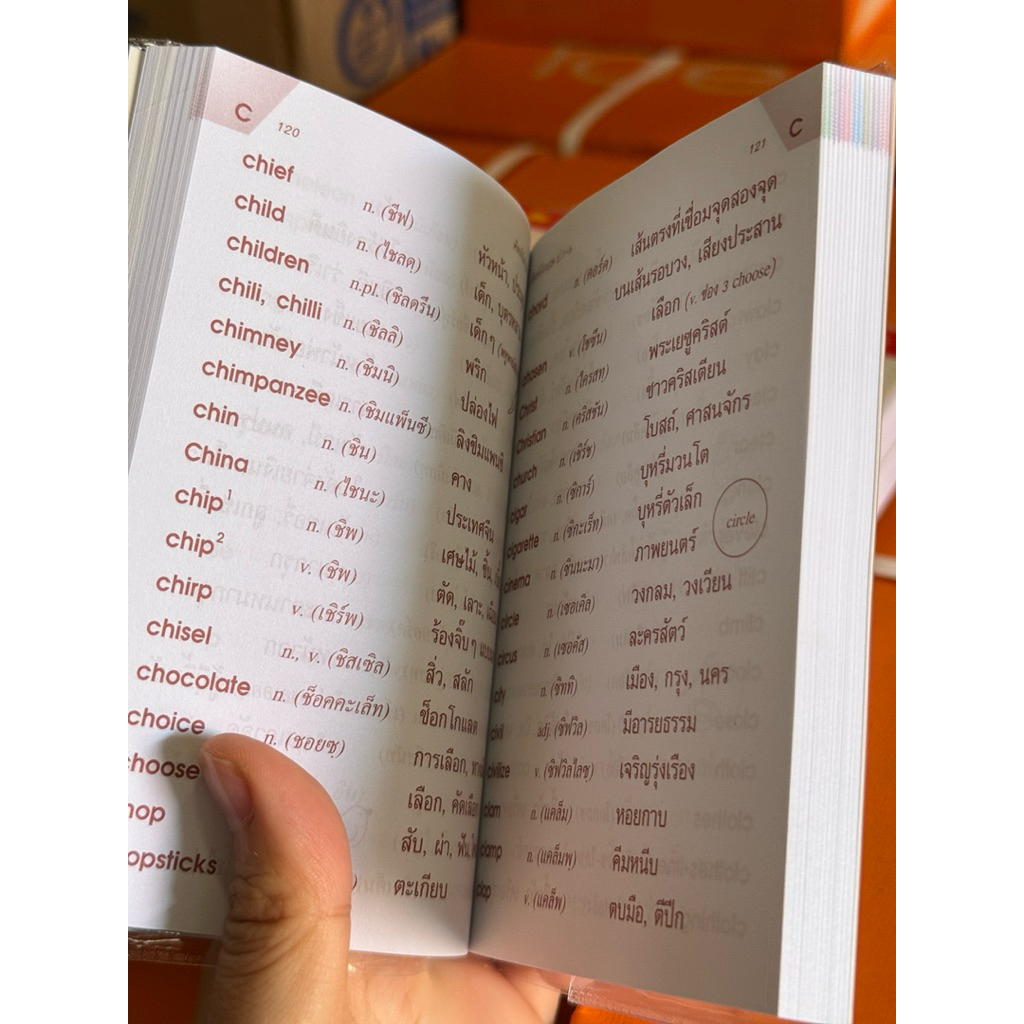 C 120
chief n. (ชีฟ) หัวหน้า,
child n. (ไชลดฺ) เด็ก,
children n.pl. (ชิลดรึน) เด็กๆ
chili, chilli n. (ชิลลิ) พริก
chimney n. (ชิมนิ) ปล่องไฟ
chimpanzee n. (ชิมแพ็นซี) ลิงชิมแพนซี
chin n. (ชิน) คาง
China n. (ไชนะ) ประเทศจีน
chip¹ n. (ชิพ) เศษไม้, ชิ้น,
chip² v. (ชิพ) ตัด, เลาะ,
chirp v. (เชิร์พ) ร้องจิ๊บๆ
chisel n., v. (ชิสเซิล) สิ่ว, สลัก
chocolate n. (ช็อคคะเล็ท) ช็อกโกแลต
choice n. (ชอยซฺ) การเลือก,
hoose เลือก,
hop สับ, ผ่า,
opsticks ตะเกียบ
121 C
chord n. (คอร์ด) เส้นตรงที่เชื่อมจุดสองจุด
บนเส้นรอบวง, เสียงประสาน
chosen v. (โชซึ่น) เลือก (v. ช่อง 3 choose)
Christ n. (ไครสทฺ) พระเยซูคริสต์
Christian n. (คริสชัน) ชาวคริสเตียน
church n. (เชิร์ช) โบสถ์, ศาสนจักร
cigar n. (ซิการ์) บุหรี่มวนโต
cigarette n. (ซิกะเร็ท) บุหรี่ตัวเล็ก
cinema n. (ซินนะมา) ภาพยนตร์
circle n. (เซอเคิล) วงกลม, วงเวียน
circle
circus n. (เซอคัส) ละครสัตว์
city n. (ซิททิ) เมือง, กรุง, นคร
civil adj. (ซิฟวิล) มีอารยธรรม
civilize v. (ซิฟวิลไลซฺ) เจริญรุ่งเรือง
clam n. (แคล็ม) หอยกาบ
clamp n. (แคล็มพฺ) คีมหนีบ
clap v. (แคล็พ) ตบมือ, ตีปีก